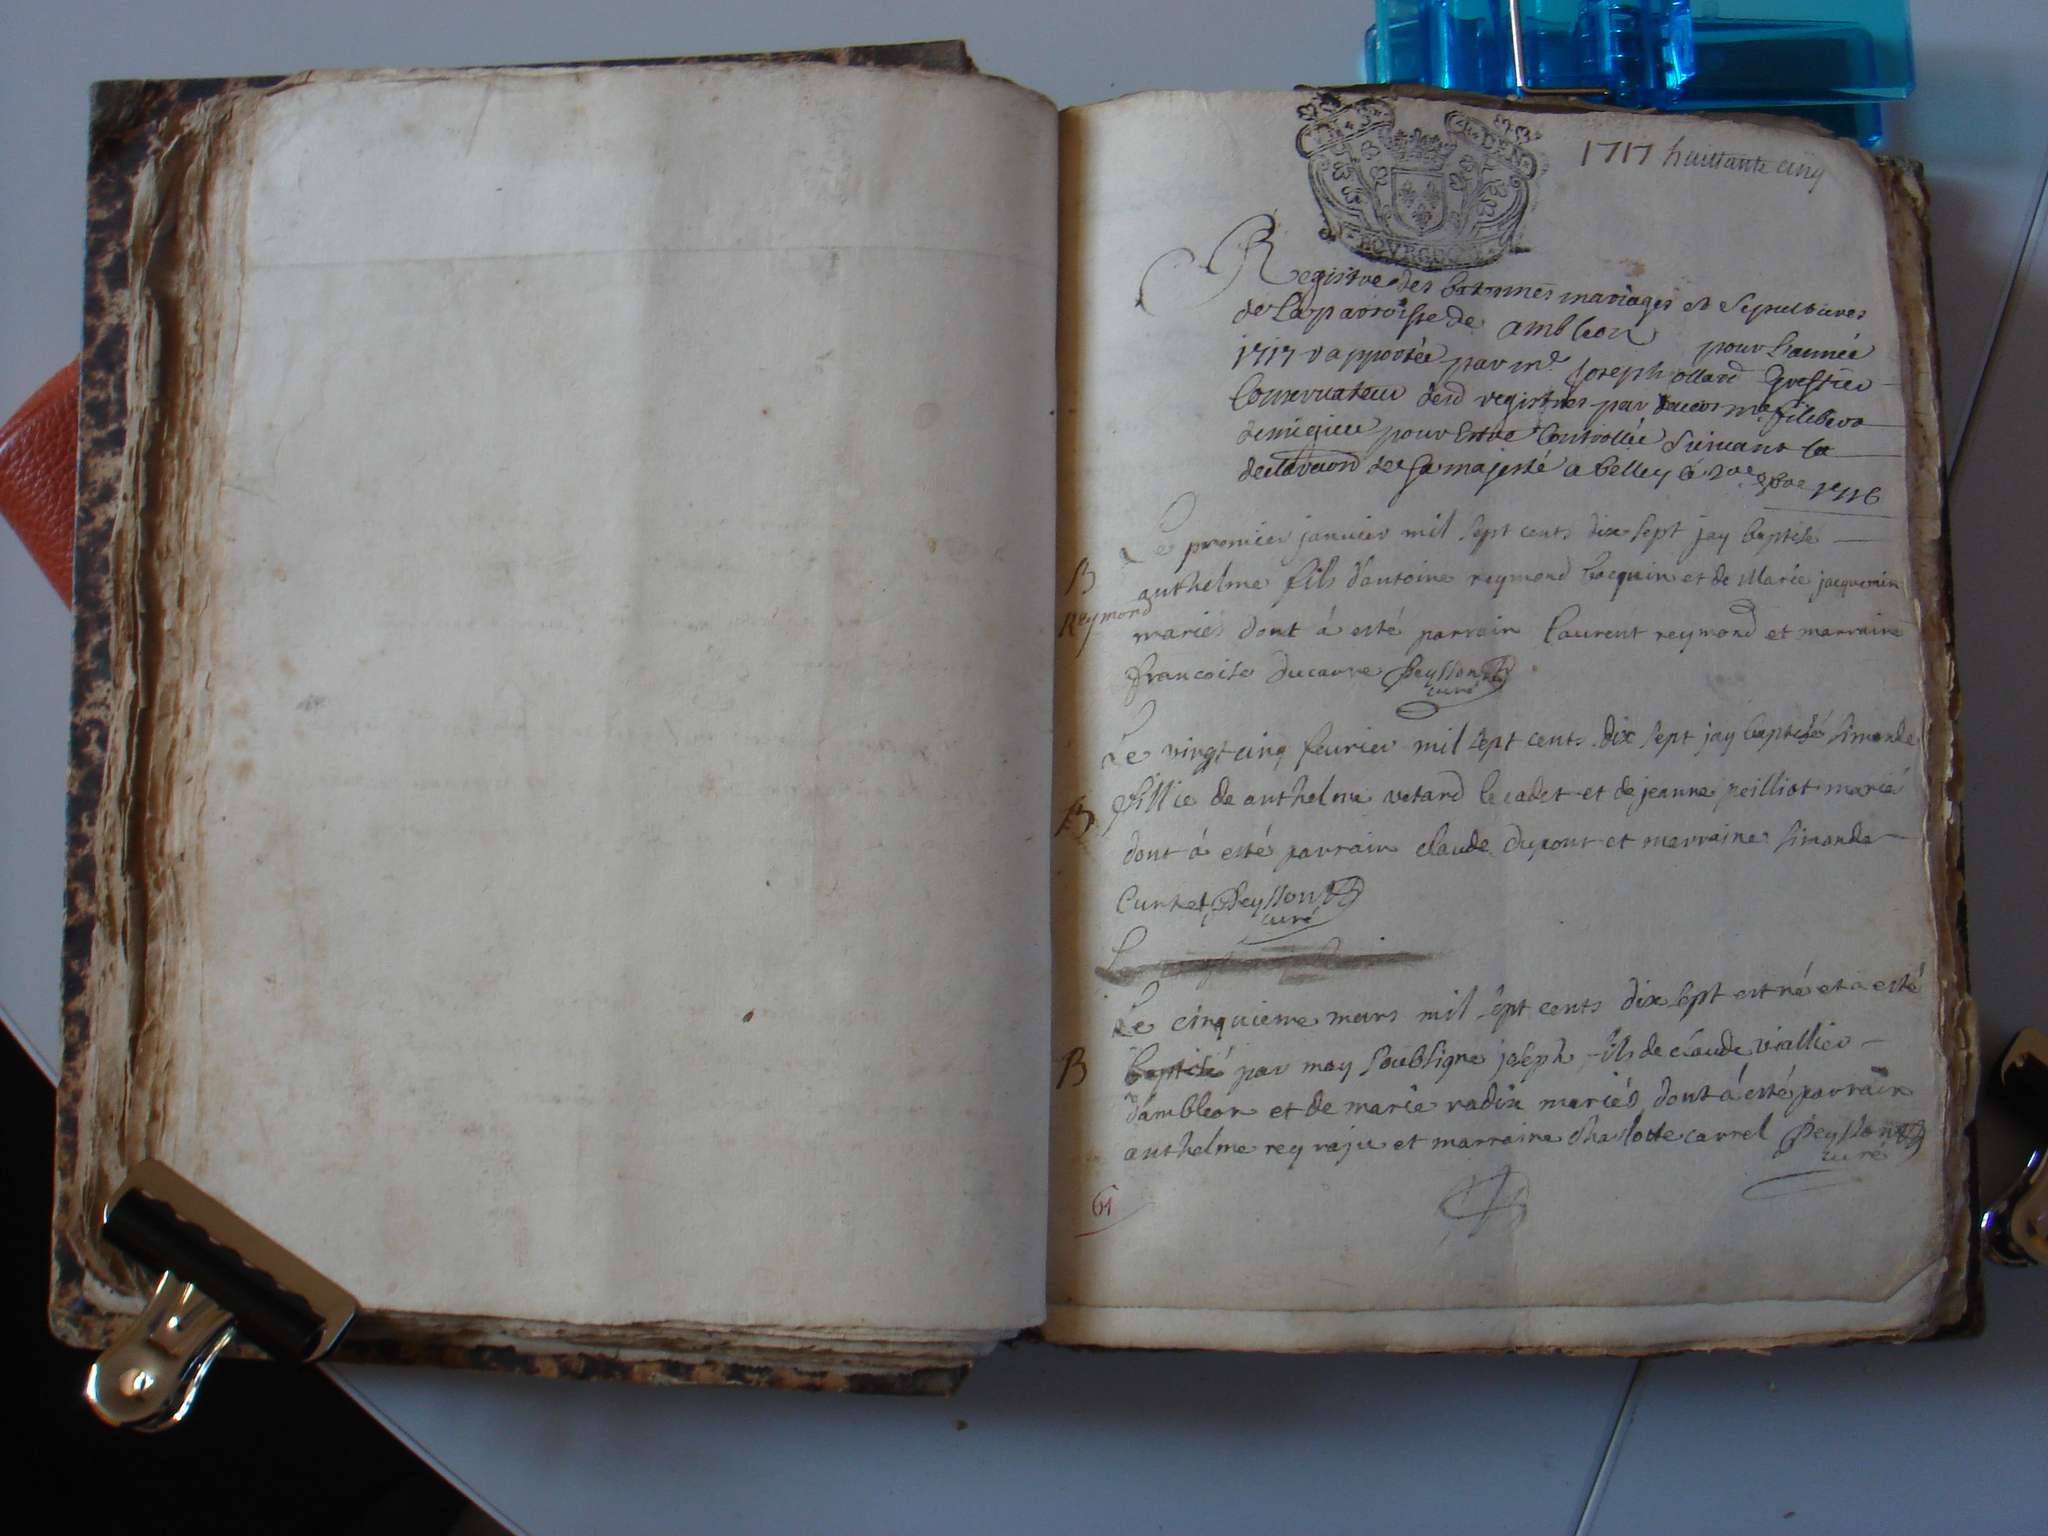 1717 huittante cinq
BOVRGOGNE
Registre des batesmes mariages et sepultures
de La parroisse de ambleon pour Lannée
1717 rapportée par mr. Joseph ollard greffier
Conservateur desd registres par
pour Estre Controllée Suivant la
declaraon de Sa majesté a belley 1716
Le premier janvier mil sept cents dix sept jay baptisé
B anthelme fils d'antoine reymond et de Marie jacquemin
Reymond
mariés dont á esté parrain laurent reymond et marraine
francoise ducarre Peysson
curé
Le vingt cinq fevrier mil sept cents dix sept jay baptisé simonde
B fillie de anthelme vetard le cadet et de jeanne peilliot marié
dont á esté parrain claude dupont et merraine simonde
Curtet Peysson
curé
Le cinquieme mars mil sept cents dix sept est né et a esté
B baptisé par moy soubsigne joseph fils de claude viallier
d'ambleon et de marie radix mariés dont á esté parrain
anthelme rey raju et marraine charlotte carrel Peysson
curé
61